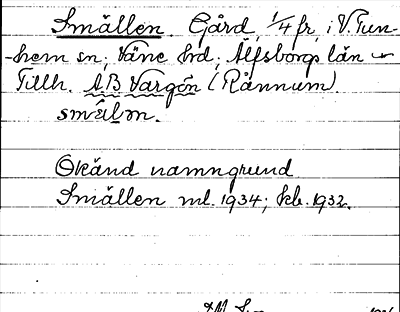 Smällen. Gård, 1/4 fr, i V. Tun-
-hem sn; Väne hrd; Älfsborgs län
Tillh. A.B Vargön (Rånnum).
smäln.
Okänd namngrund
Smällen ml. 1934; kb. 1932.